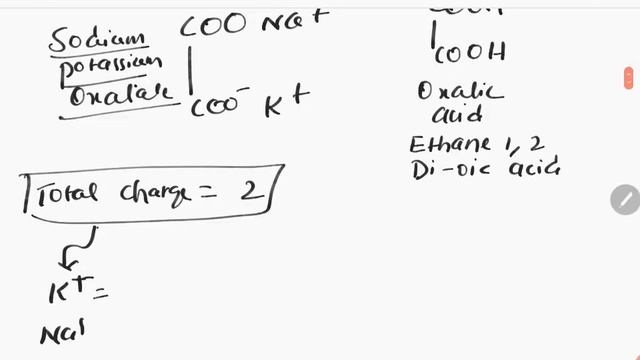 Sodium
potassium
Oxalate
COO Na+
COO- K+
COOH
COOH
Oxalic
acid
Ethane 1, 2
Di-oic acid
Total charge = 2
K+ =
Na